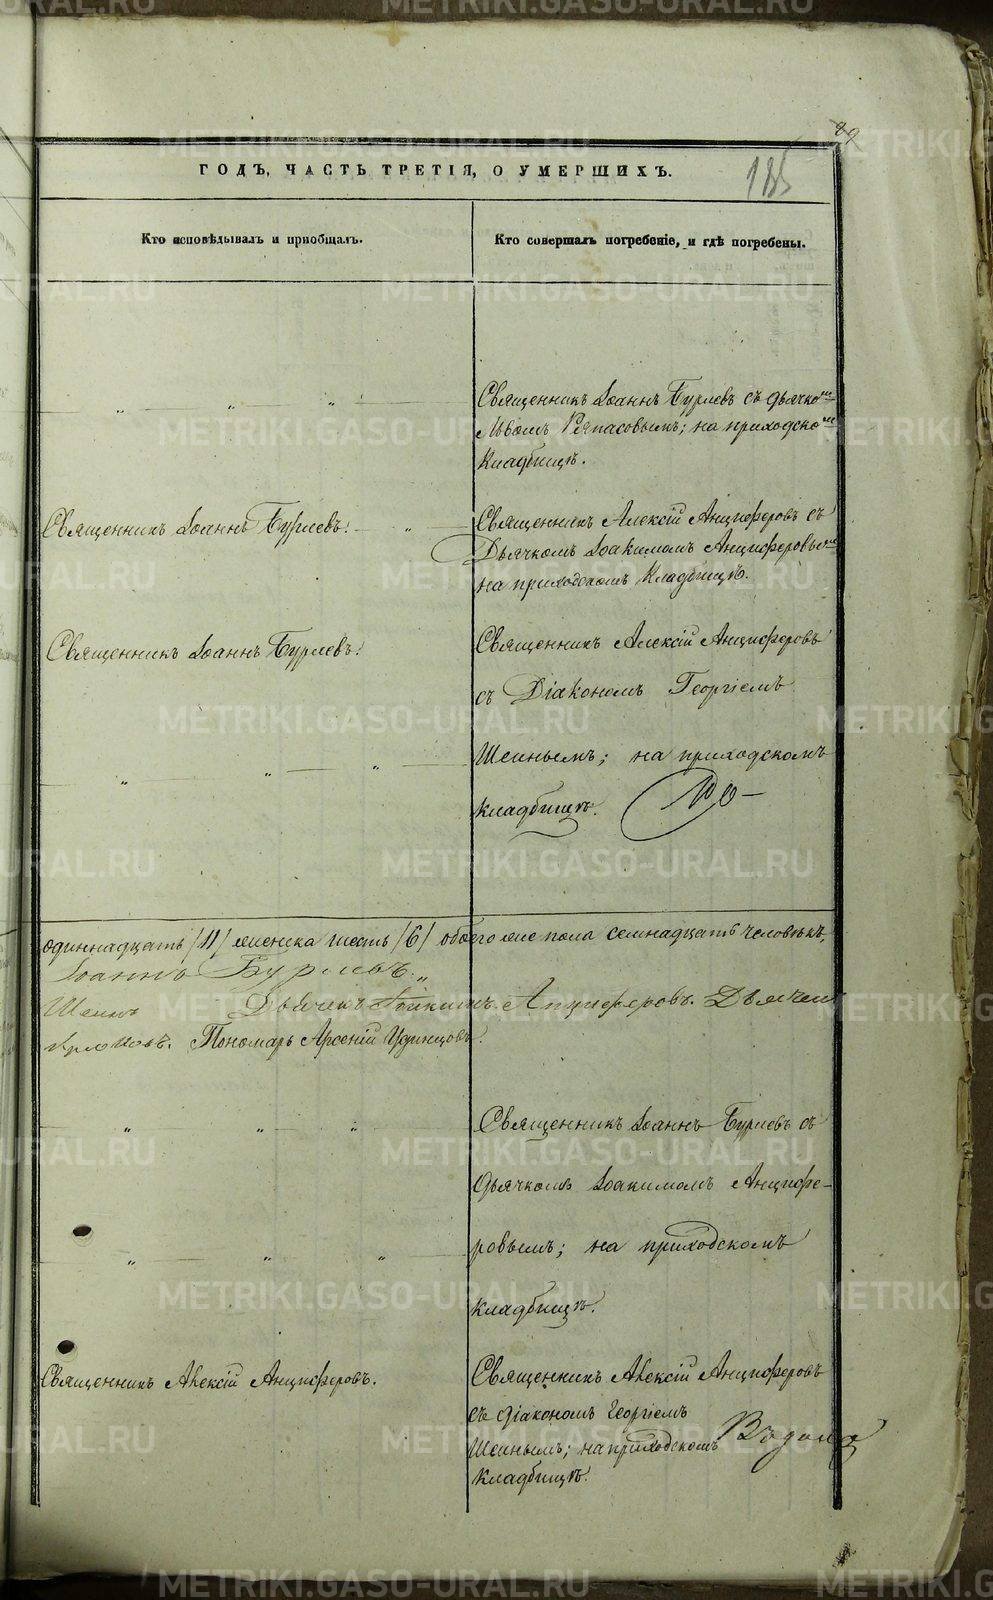 89
185
ГОДЪ, ЧАСТЬ ТРЕТІЯ, О УМЕРШИХЪ.
Кто исповѣдывалъ и пріобщалъ.
Кто совершалъ погребеніе, и гдѣ погребены.
Священникъ Іоаннъ Бурлевъ съ дьячкомъ
Львомъ Ряпасовымъ; на приходскомъ
Кладбищѣ.
Священникъ Іоаннъ Бурлевъ.
Священникъ Алексій Анциферовъ съ
Дьячкомъ Іоакимомъ Анциферовымъ
на приходскомъ Кладбищѣ.
Священникъ Іоаннъ Бурлевъ.
Священникъ Алексій Анциферовъ
съ Діакономъ Георгіемъ
Шеинымъ; на приходскомъ
кладбищѣ.
одиннадцать /11/ женска шесть /6/ обоего же пола семнадцать человѣкъ,
Іоаннъ Бурлевъ.
Шеинъ Дьячекъ Іоакимъ Анциферовъ. Дьячек
Пономарь Арсеній Удинцовъ.
Священникъ Іоаннъ Бурлевъ съ
дьячкомъ Іоакимомъ Анцифе-
ровымъ; на приходскомъ
кладбищѣ.
Священникъ Алексій Анциферовъ.
Священникъ Алексій Анциферовъ
съ діакономъ Георгіемъ
Шеинымъ; на приходскомъ
Кладбищѣ.
METRIKI.GASO-URAL.RU